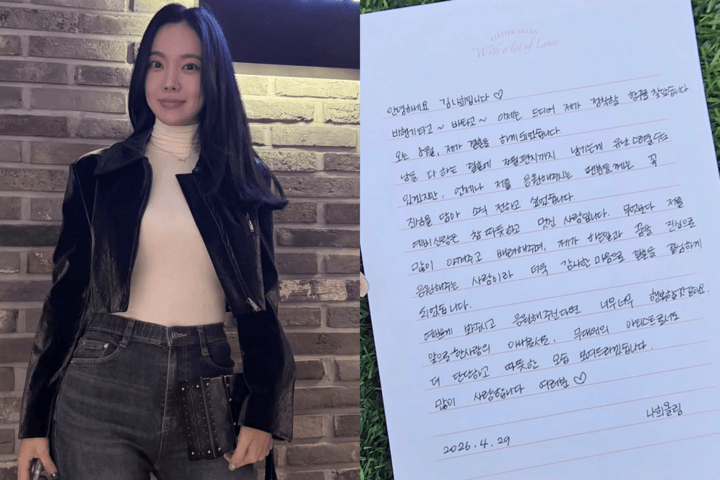 With a lot of Love
안녕하세요 김나희입니다 ♡
비행기타고~ 바꿔타고~ 이제는 드디어 제가 정착할 항구를 찾았습니다
오는 제가 결혼을 하게 되었습니다
남들 다 하는 결혼에 자필편지까지 남기는게 유난스러울 수도
있겠지만, 언제나 저를 응원해주시는 팬분들께는 꼭
진심을 담아 소식 전하고 싶었습니다.
예비신랑은 참 따뜻하고 멋진 사람입니다. 무엇보다 저를
많이 아껴주고 배려해주며, 제가 하는 일과 꿈을 진심으로
응원해주는 사람이라 더욱 감사한 마음으로 결혼을 결심하게
되었습니다.
예쁘게 봐주시고 응원해주신다면 너무너무 행복할것같아요.
앞으로 한사람의 아내로서, 무대위의 아티스트로서도
더 단단하고 따뜻한 모습 보여드리겠습니다.
많이 사랑합니다 여러분 ♡
나희올림
2026. 4. 29